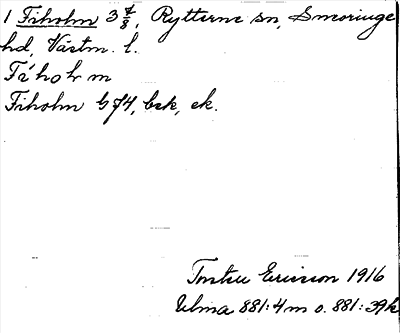 1 Fiholm 3 7/8, Rytterne sn, Snevringe
hd, Västm. l.
Fi´hol m
Fiholm b 74, bek, ek.
Ericsson 1916
Ulma 881:4 m o. 881:39 k